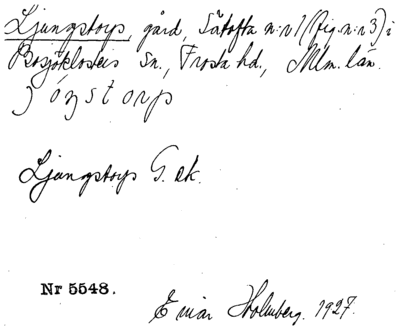 Ljungstorp, gård, Sätofta n:r 1 (fig. n:r 3) i
Bosjöklosters Sn., Frosta hd., Mlm. län.
jóŋstorp
Ljungstorp G. ek.
Nr 5548.
Einar Holmberg. 1927.